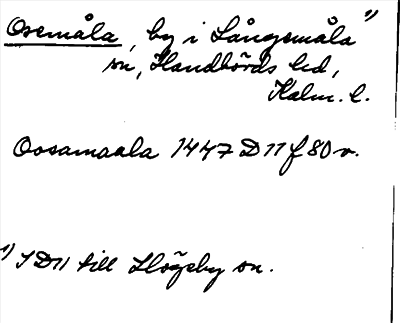 Osemåla, by i Långemåla 1)
sn, Handbörds hd,
Kalm. l.
Oosamaala 1447 D 11 f 80 v.
1) I D 11 till Högsby sn.